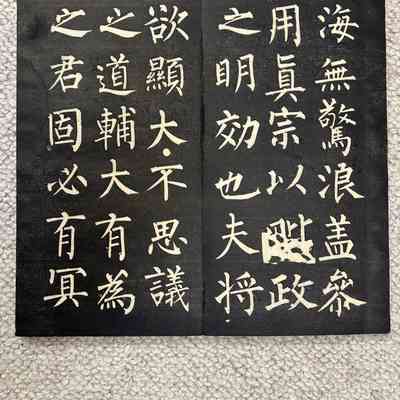 海無驚浪盖參
用眞宗以毗政
之明効也夫將
欲顯大不思議
之道輔大有為
之君固必有冥